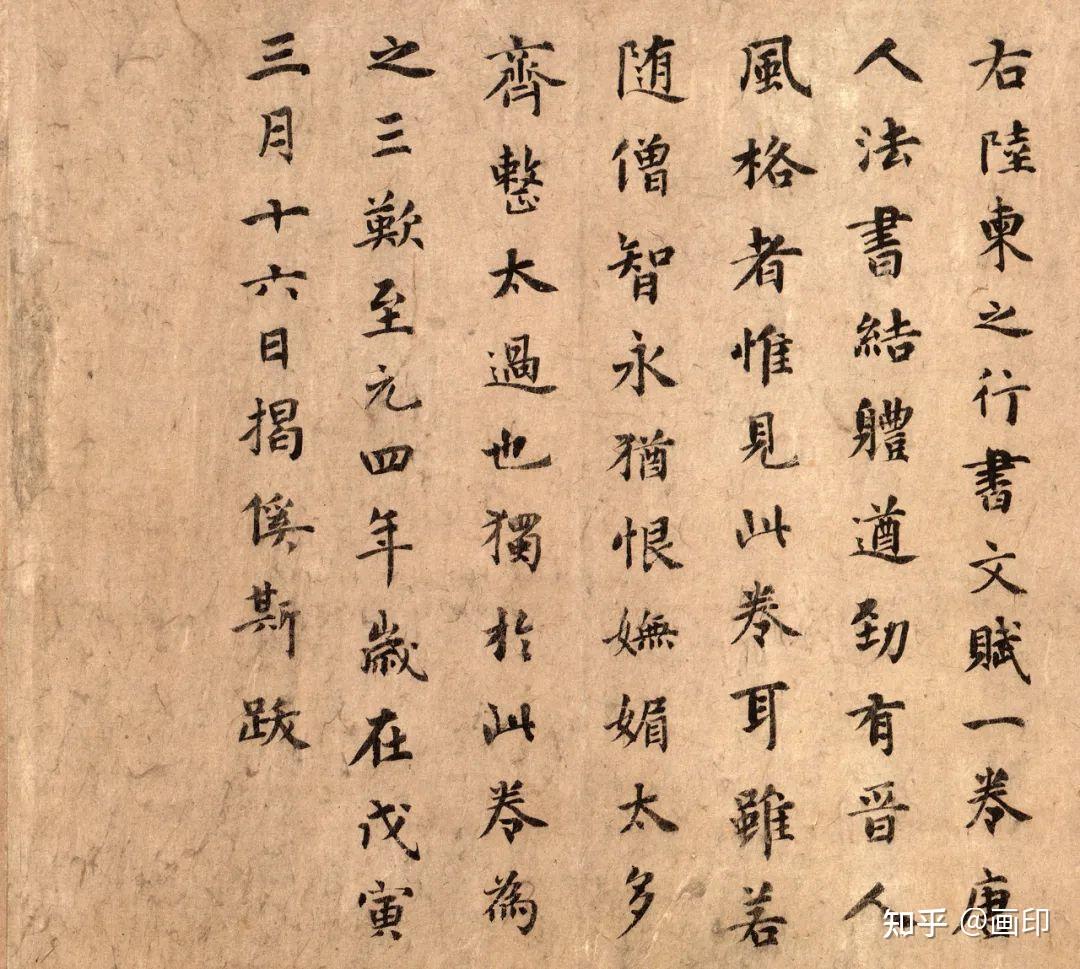 右陸柬之行書文賦一卷唐
人法書結體遒勁有晉人
風格者惟見此卷耳雖若
隨僧智永猶恨嫵媚太多
齊整太過也獨於此卷為
之三歎至元四年歲在戊寅
三月十六日揭傒斯跋
知乎 @画印